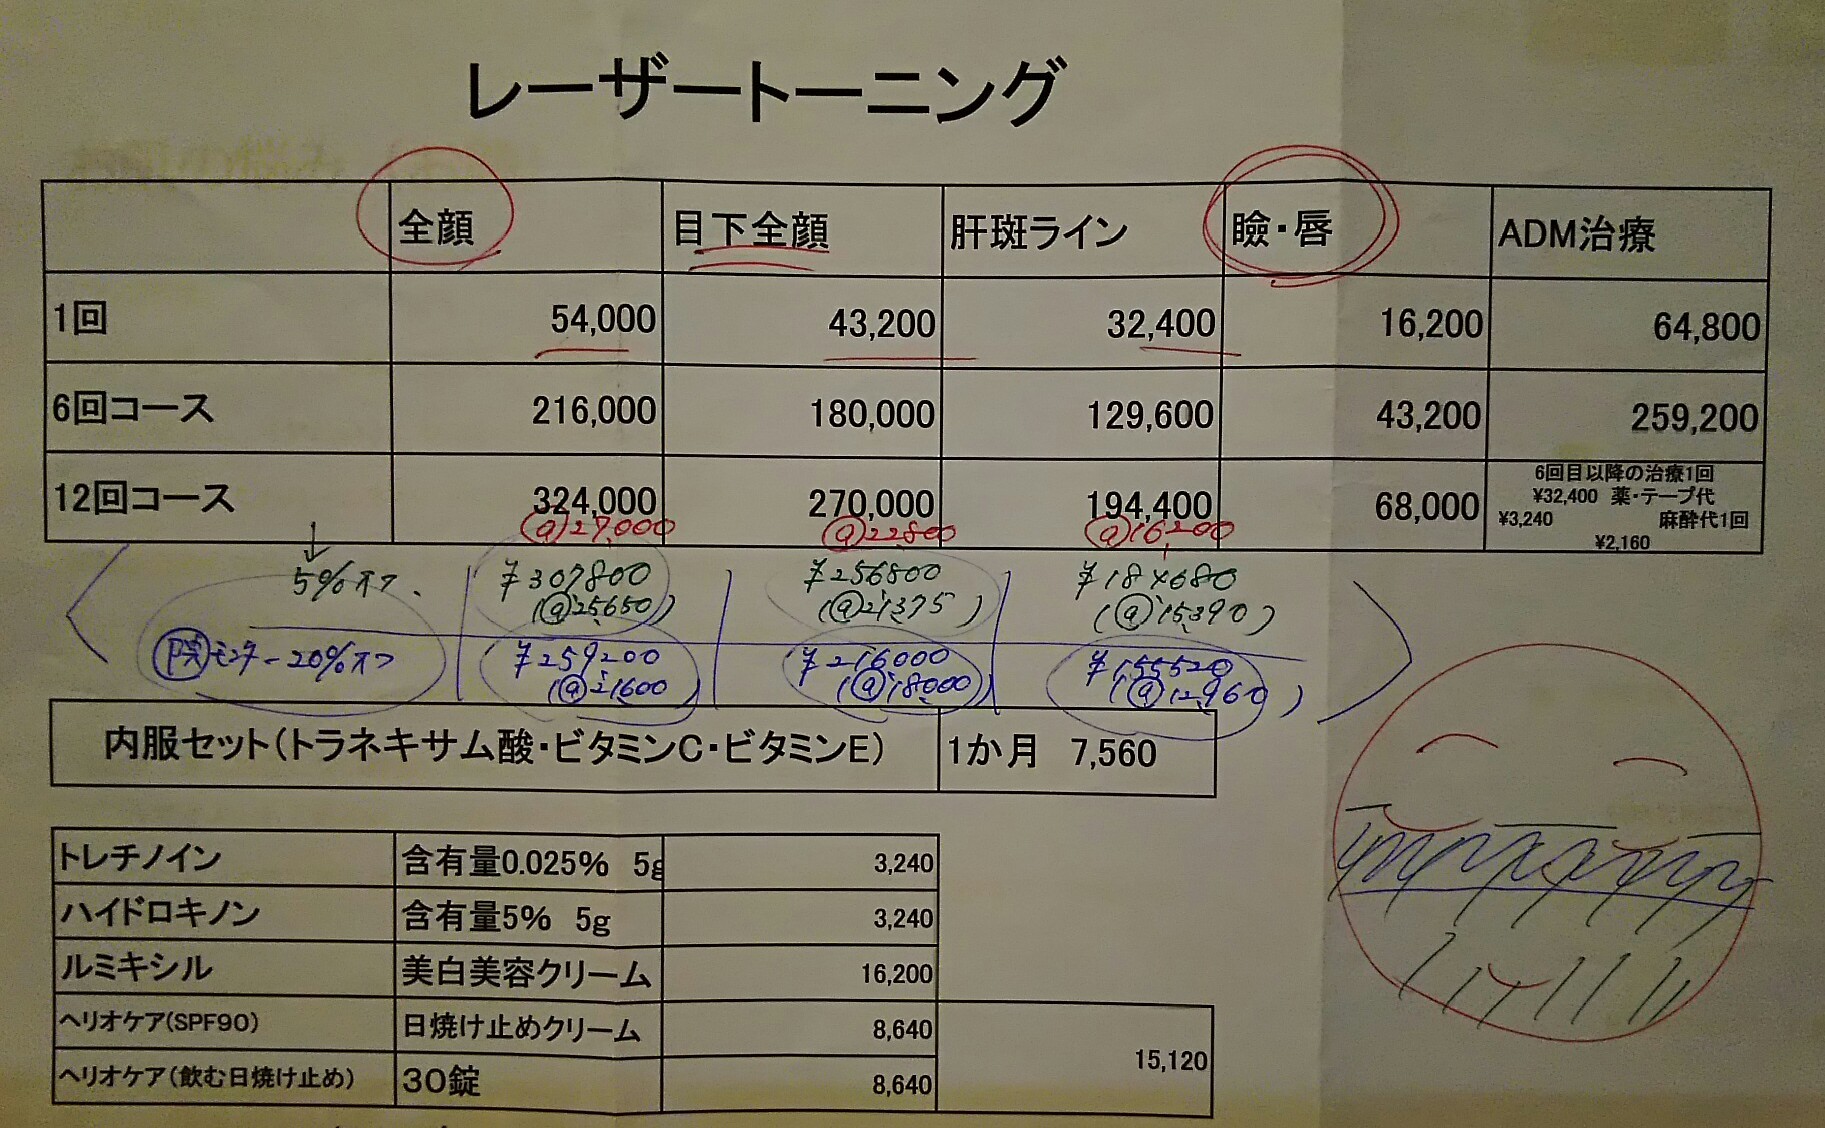 レーザートーニング
全顔 目下全顔 肝斑ライン 瞼・唇 ADM治療
1回 54,000 43,200 32,400 16,200 64,800
6回コース 216,000 180,000 129,600 43,200 259,200
12回コース 324,000 270,000 194,400 68,000
6回目以降の治療1回
¥32,400 薬・テープ代
¥3,240 麻酔代1回
¥2,160
@27,000 @22800 @16200
5%オフ ¥307800 ¥256800 ¥184680
(@25,650) (@21,375) (@15,390)
モニター 20%オフ ¥259200 ¥216000 ¥155520
(@21,600) (@18,000) (@12,960)
内服セット(トラネキサム酸・ビタミンC・ビタミンE) 1か月 7,560
トレチノイン 含有量0.025% 5g 3,240
ハイドロキノン 含有量5% 5g 3,240
ルミキシル 美白美容クリーム 16,200
ヘリオケア(SPF90) 日焼け止めクリーム 8,640
15,120
ヘリオケア(飲む日焼け止め) 30錠 8,640